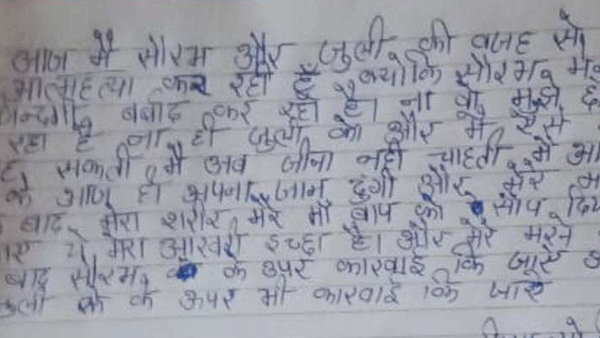 आज मै सौरभ और जुली की वजह से
आत्महत्या कर रही हूँ क्योकि सौरभ मे
जिन्दगी बर्बाद कर रहा है। ना वो मुझे छ
रहा है ना ही जुली को और मै ऐसे
सकती मै अब जीना नही चाहती मै आ
के आज ही अपना जान दुंगी और मेरे म
बाद मेरा शरीर मेरे माँ बाप को सौप दिय
ये मेरा आखरी इच्छा है। और मेरे मरने
बाद सौरभ के उपर कारवाई कि जाए
के ऊपर भी कारवाई कि जाए